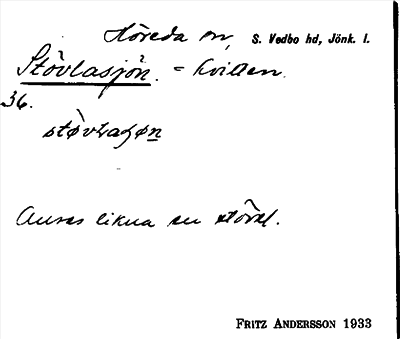 Höreda sn, S. Vedbo hd, Jönk. l.
Stövlasjön. = kvillen.
36.
støvlaʃøn
Anses likna en stövel.
FRITZ ANDERSSON 1933